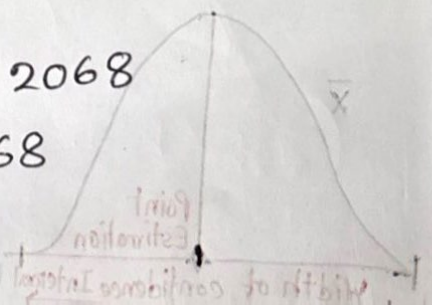 2068
x̄
68
Point
Estimation
Width of confidence Interval